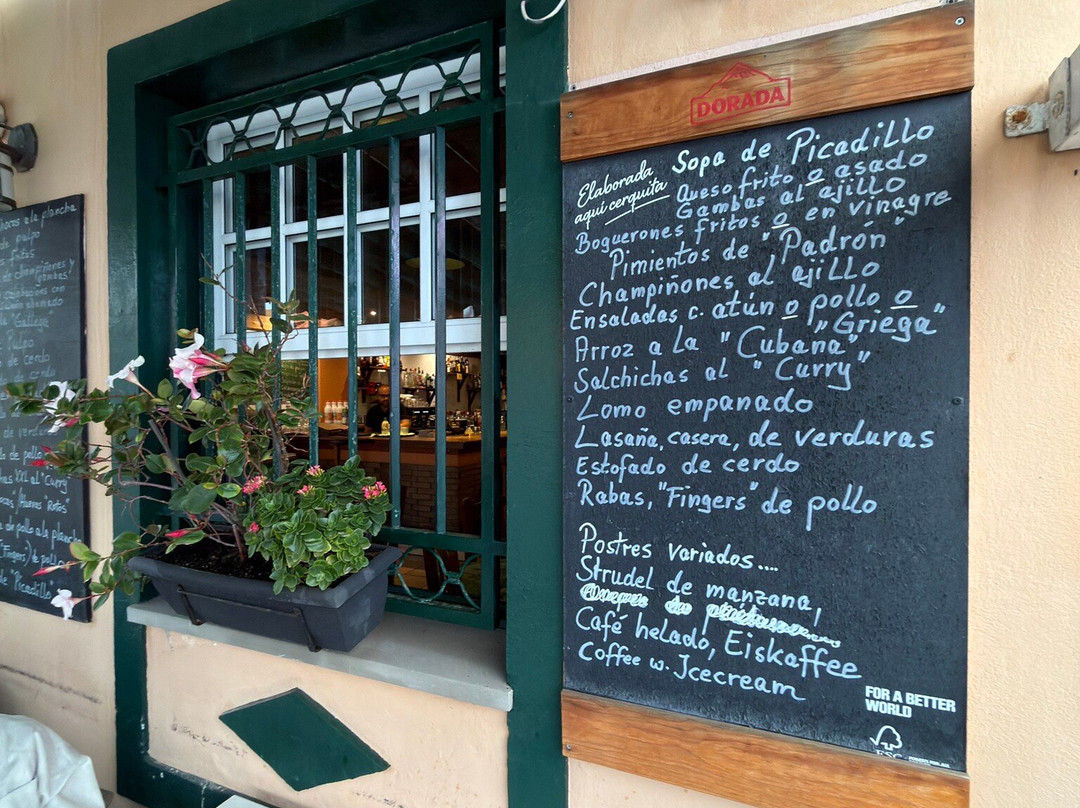 a la plancha
pulpo
fritos
de champiñones y
gambas
"Gallega"
Pulpo
de cerdo
de pollo
XXL al "Curry"
"Huevos "Rotos"
de pollo a la plancha
"Fingers) de pollo
de "Picadillo"
DORADA
Elaborada
aquí cerquita
Sopa de Picadillo
Queso frito o asado
Gambas al ajillo
Boguerones fritos o en vinagre
Pimientos de "Padrón"
Champiñones al ajillo
Ensaladas c. atún o pollo o
"Griega"
Arroz a la "Cubana"
Salchichas al "Curry"
Lomo empanado
Lasaña, casera, de verduras
Estofado de cerdo
Rabas, "Fingers" de pollo
Postres variados....
Strudel de manzana,
Café helado, Eiskaffee
Coffee w. Icecream
FOR A BETTER
WORLD
FSC